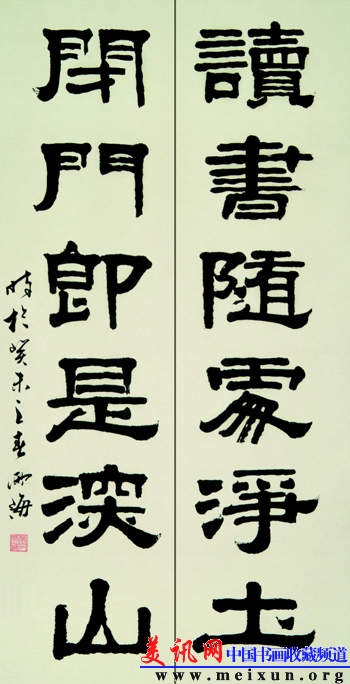 讀書隨處淨土
閉門即是深山
時於癸未立春雨海
美讯网 中国书画收藏频道
www.meixun.org